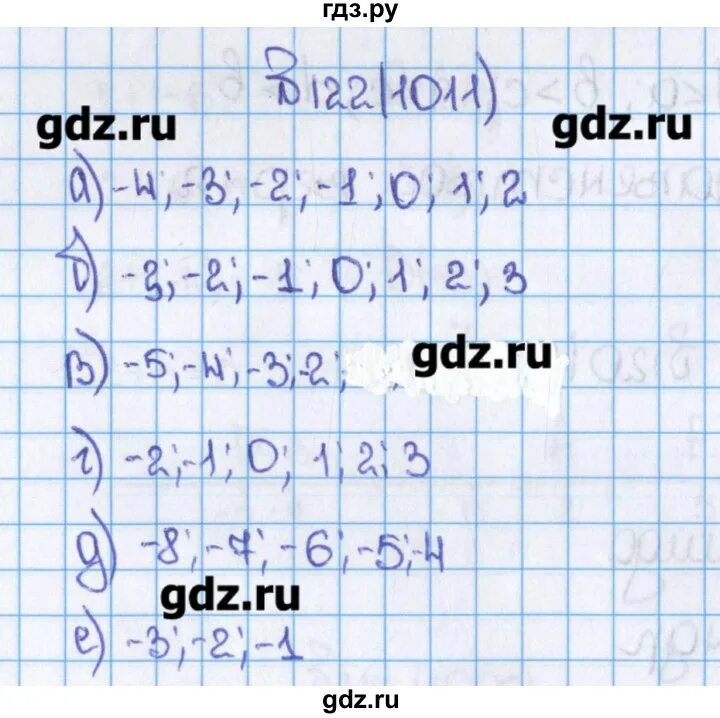 гдз.ру
В 122(1011)
gdz.ru gdz.ru
а) -4; -3; -2; -1; 0; 1; 2
б) -3; -2; -1; 0; 1; 2; 3
gdz.ru
в) -5; -4; -3; -2;
г) -2; -1; 0; 1; 2; 3
д) -8; -7; -6; -5; -4
gdz.ru
е) -3; -2; -1
gdz.ru